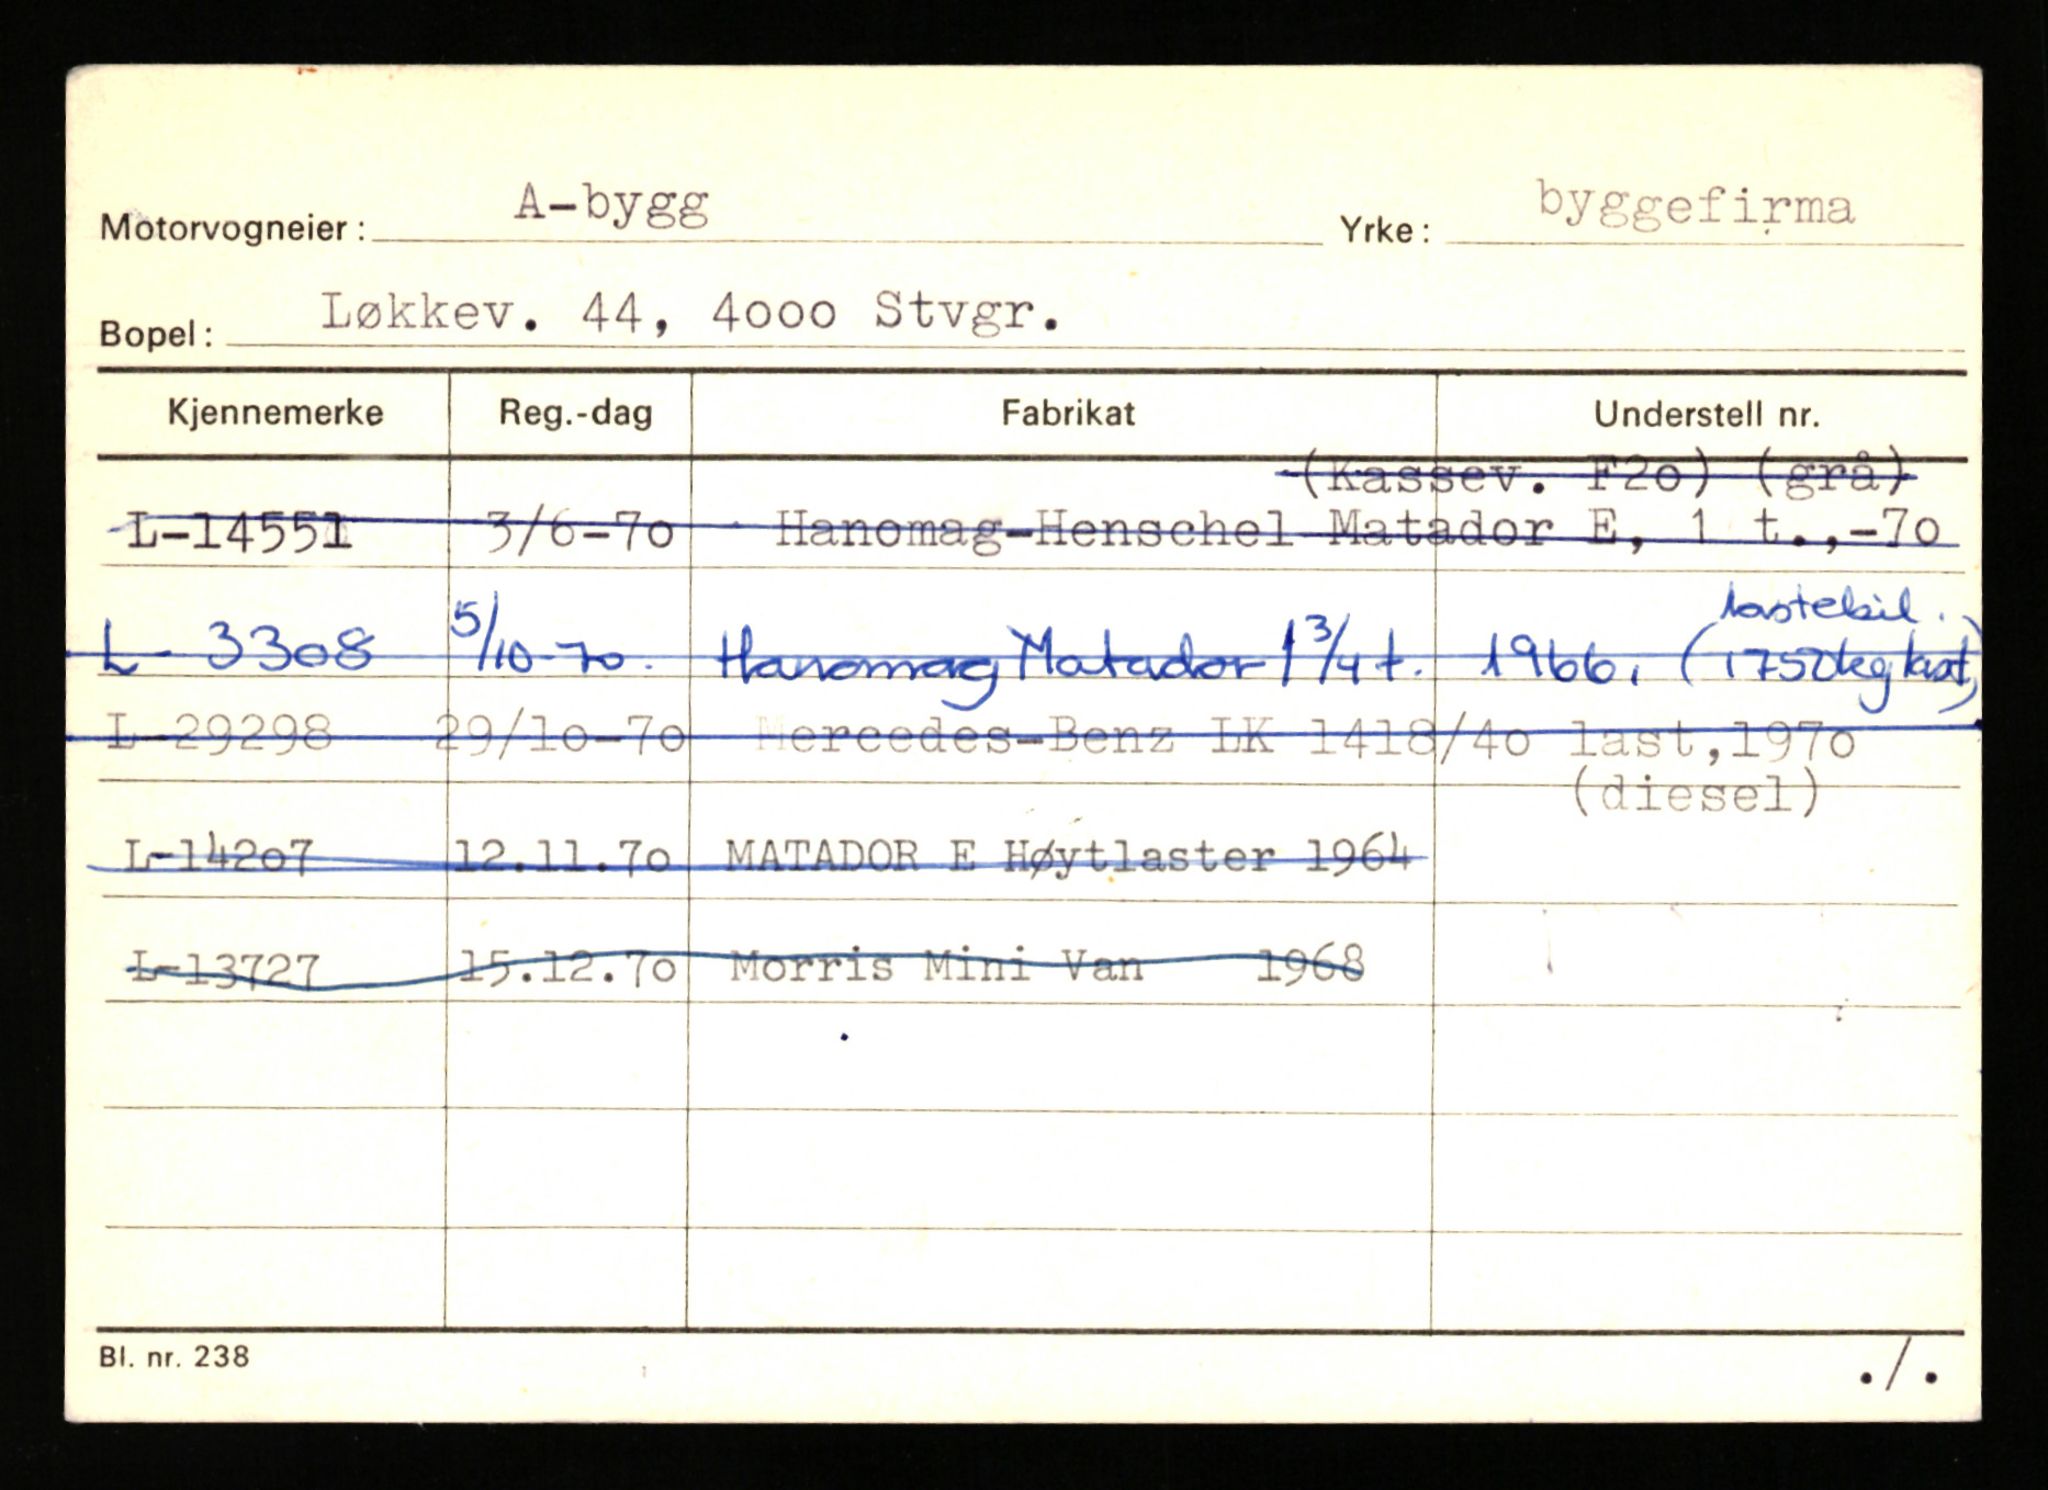 Motorvogneier: A-bygg Yrke: byggefirma
Bopel: Løkkev. 44, 4000 Stvgr.
Kjennemerke Reg.-dag Fabrikat Understell nr.
(Kassev. F20) (grå)
L-14551 3/6-70 Hanomag-Henschel Matador E, 1 t.,-70
lastebil.
L-3308 5/10-70. Hanomag Matador 1 3/4 t. 1966, (1750 kg last)
L-29298 29/10-70 Mercedes-Benz LK 1418/40 last,1970
(diesel)
L-14207 12.11.70 MATADOR E Høytlaster 1964
L-13727 15.12.70 Morris Mini Van 1968
Bl. nr. 238
./.